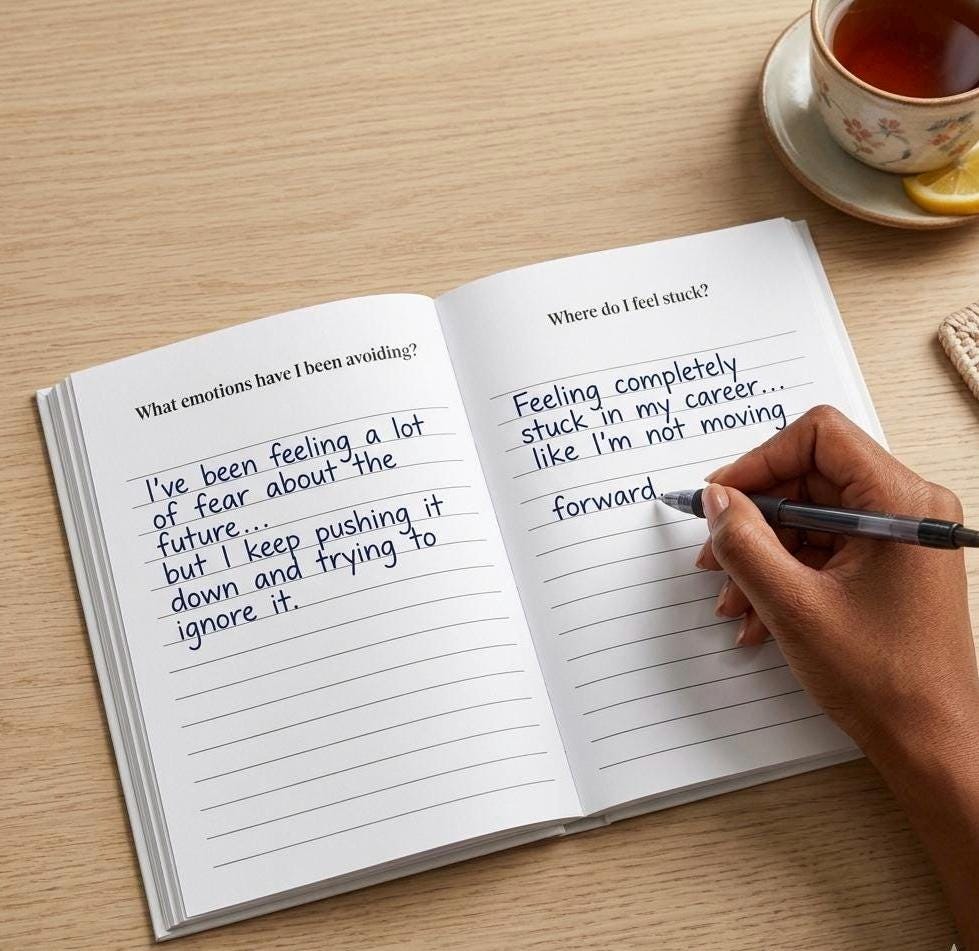 What emotions have I been avoiding?
I've been feeling a lot
of fear about the
future...
but I keep pushing it
down and trying to
ignore it.
Where do I feel stuck?
Feeling completely
stuck in my career...
like I'm not moving
forward.